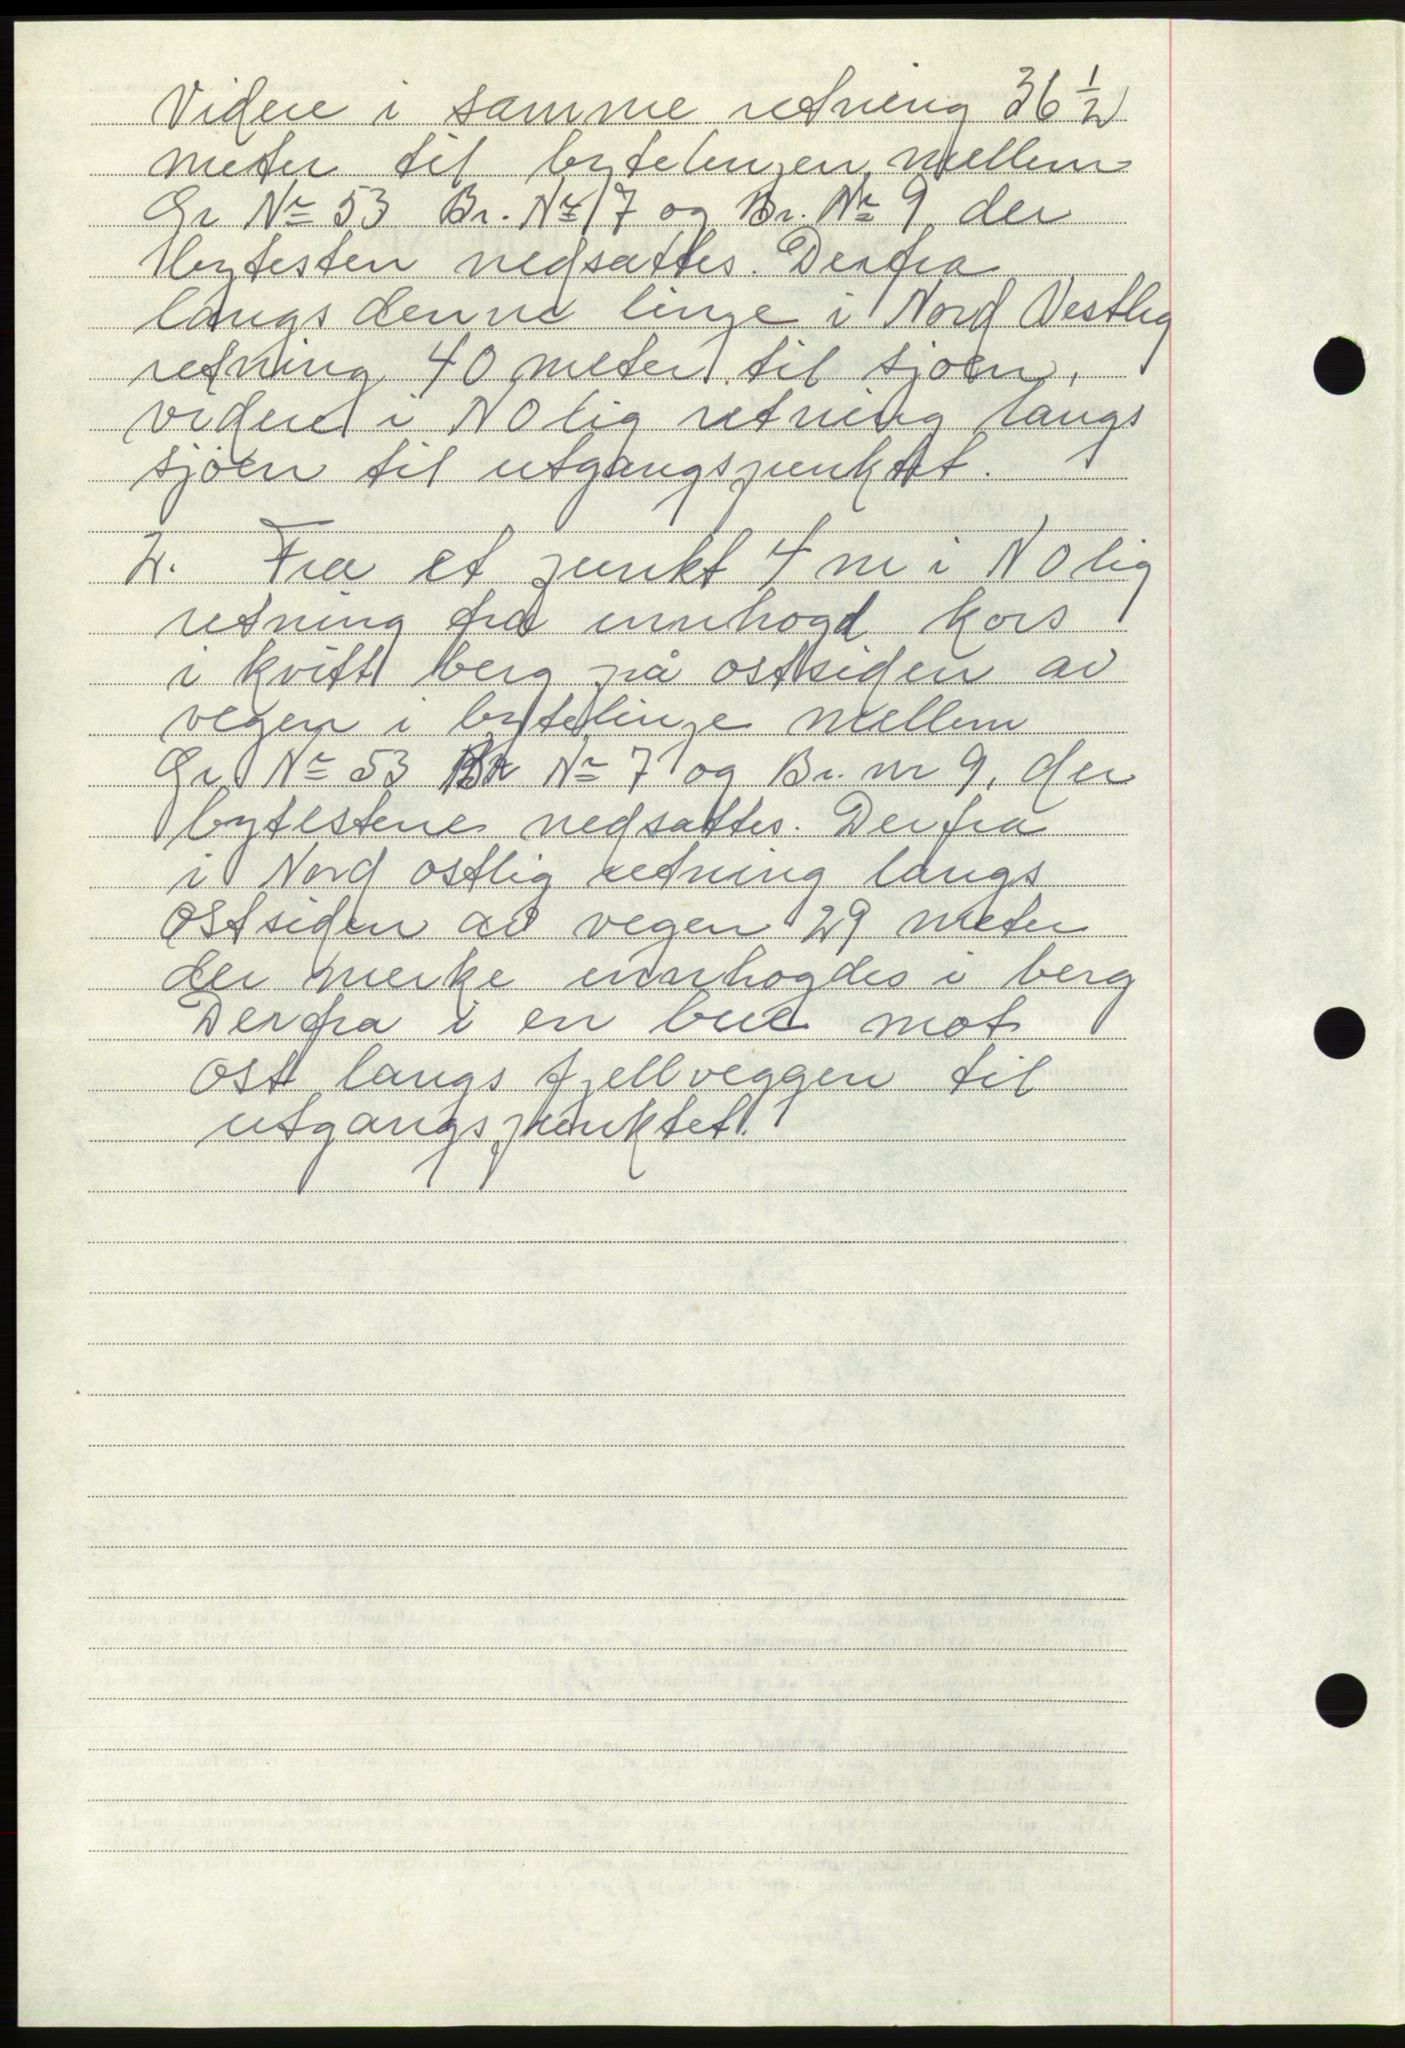 Videre i samme retning 36 1/2
meter til bytelinjen mellem
Gr Nr 53 Br. Nr 7 og Br. Nr 9 der
bytesten nedsattes. Derfra
langs denne linje i Nord Vestlig
retning 40 meter til sjøen,
videre i NO lig retning langs
sjøen til utgangspunktet.
2. Fra et punkt 4 m i NO lig
retning fra innhogd kors
i kvitt berg på ostsiden av
vegen i bytelinje mellem
Gr. Nr 53 Br Nr 7 og Br. nr 9, der
bytestene nedsattes. Derfra
i Nord ostlig retning langs
ostsiden av vegen 29 meter
der merke innhogdes i berg
Derfra i en bue mot
ost langs fjellveggen til
utgangspunktet.